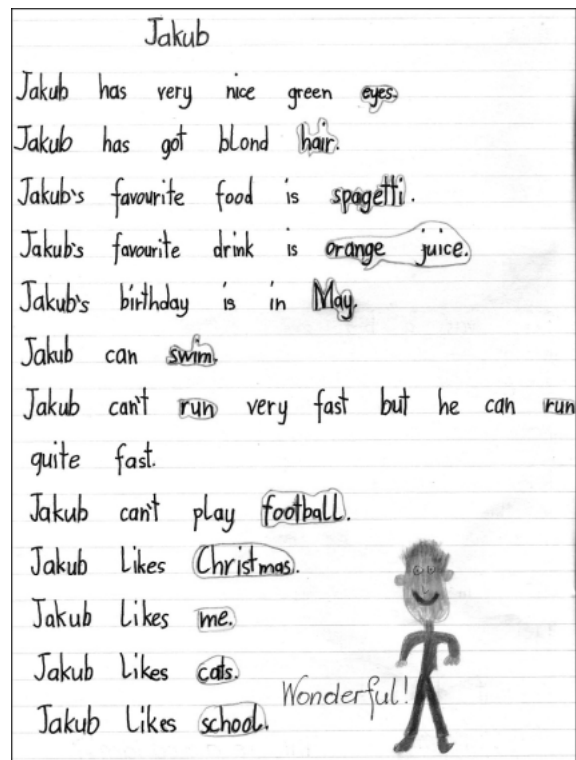 Jakub
Jakub has very nice green eyes.
Jakub has got blond hair.
Jakub's favourite food is spagetti.
Jakub's favourite drink is orange juice.
Jakub's birthday is in May.
Jakub can swim.
Jakub can't run very fast but he can run
quite fast.
Jakub can't play football.
Jakub likes Christmas.
Jakub likes me.
Jakub likes cats.
Wonderful!
Jakub likes school.